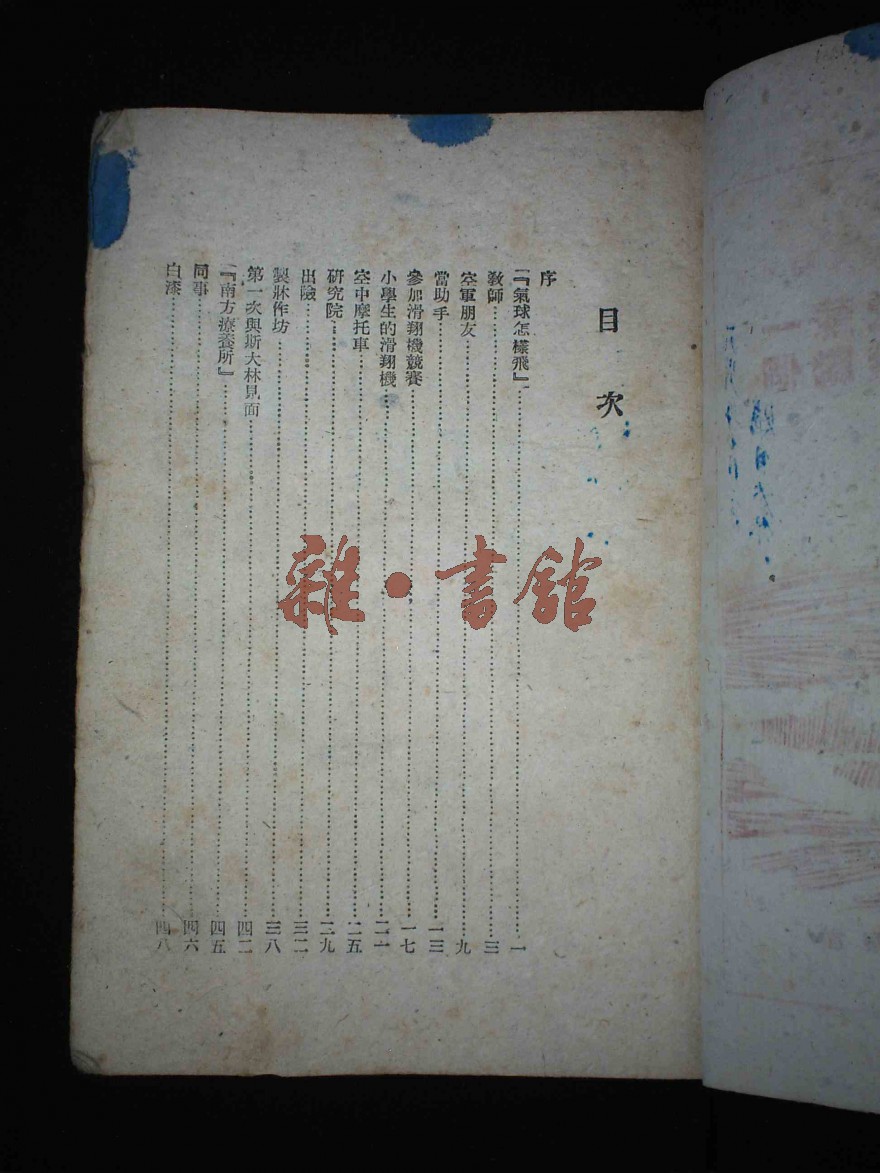 目次
序
『氣球怎樣飛』……一
教師……三
空軍朋友……九
當助手……一三
參加滑翔機競賽……一七
小學生的滑翔機……二一
空中摩托車……二五
研究院……二九
出險……三二
製牀作坊……三八
第一次與斯大林見面……四二
『南方療養所』……四五
同事……四六
白漆……四八
雜·書館